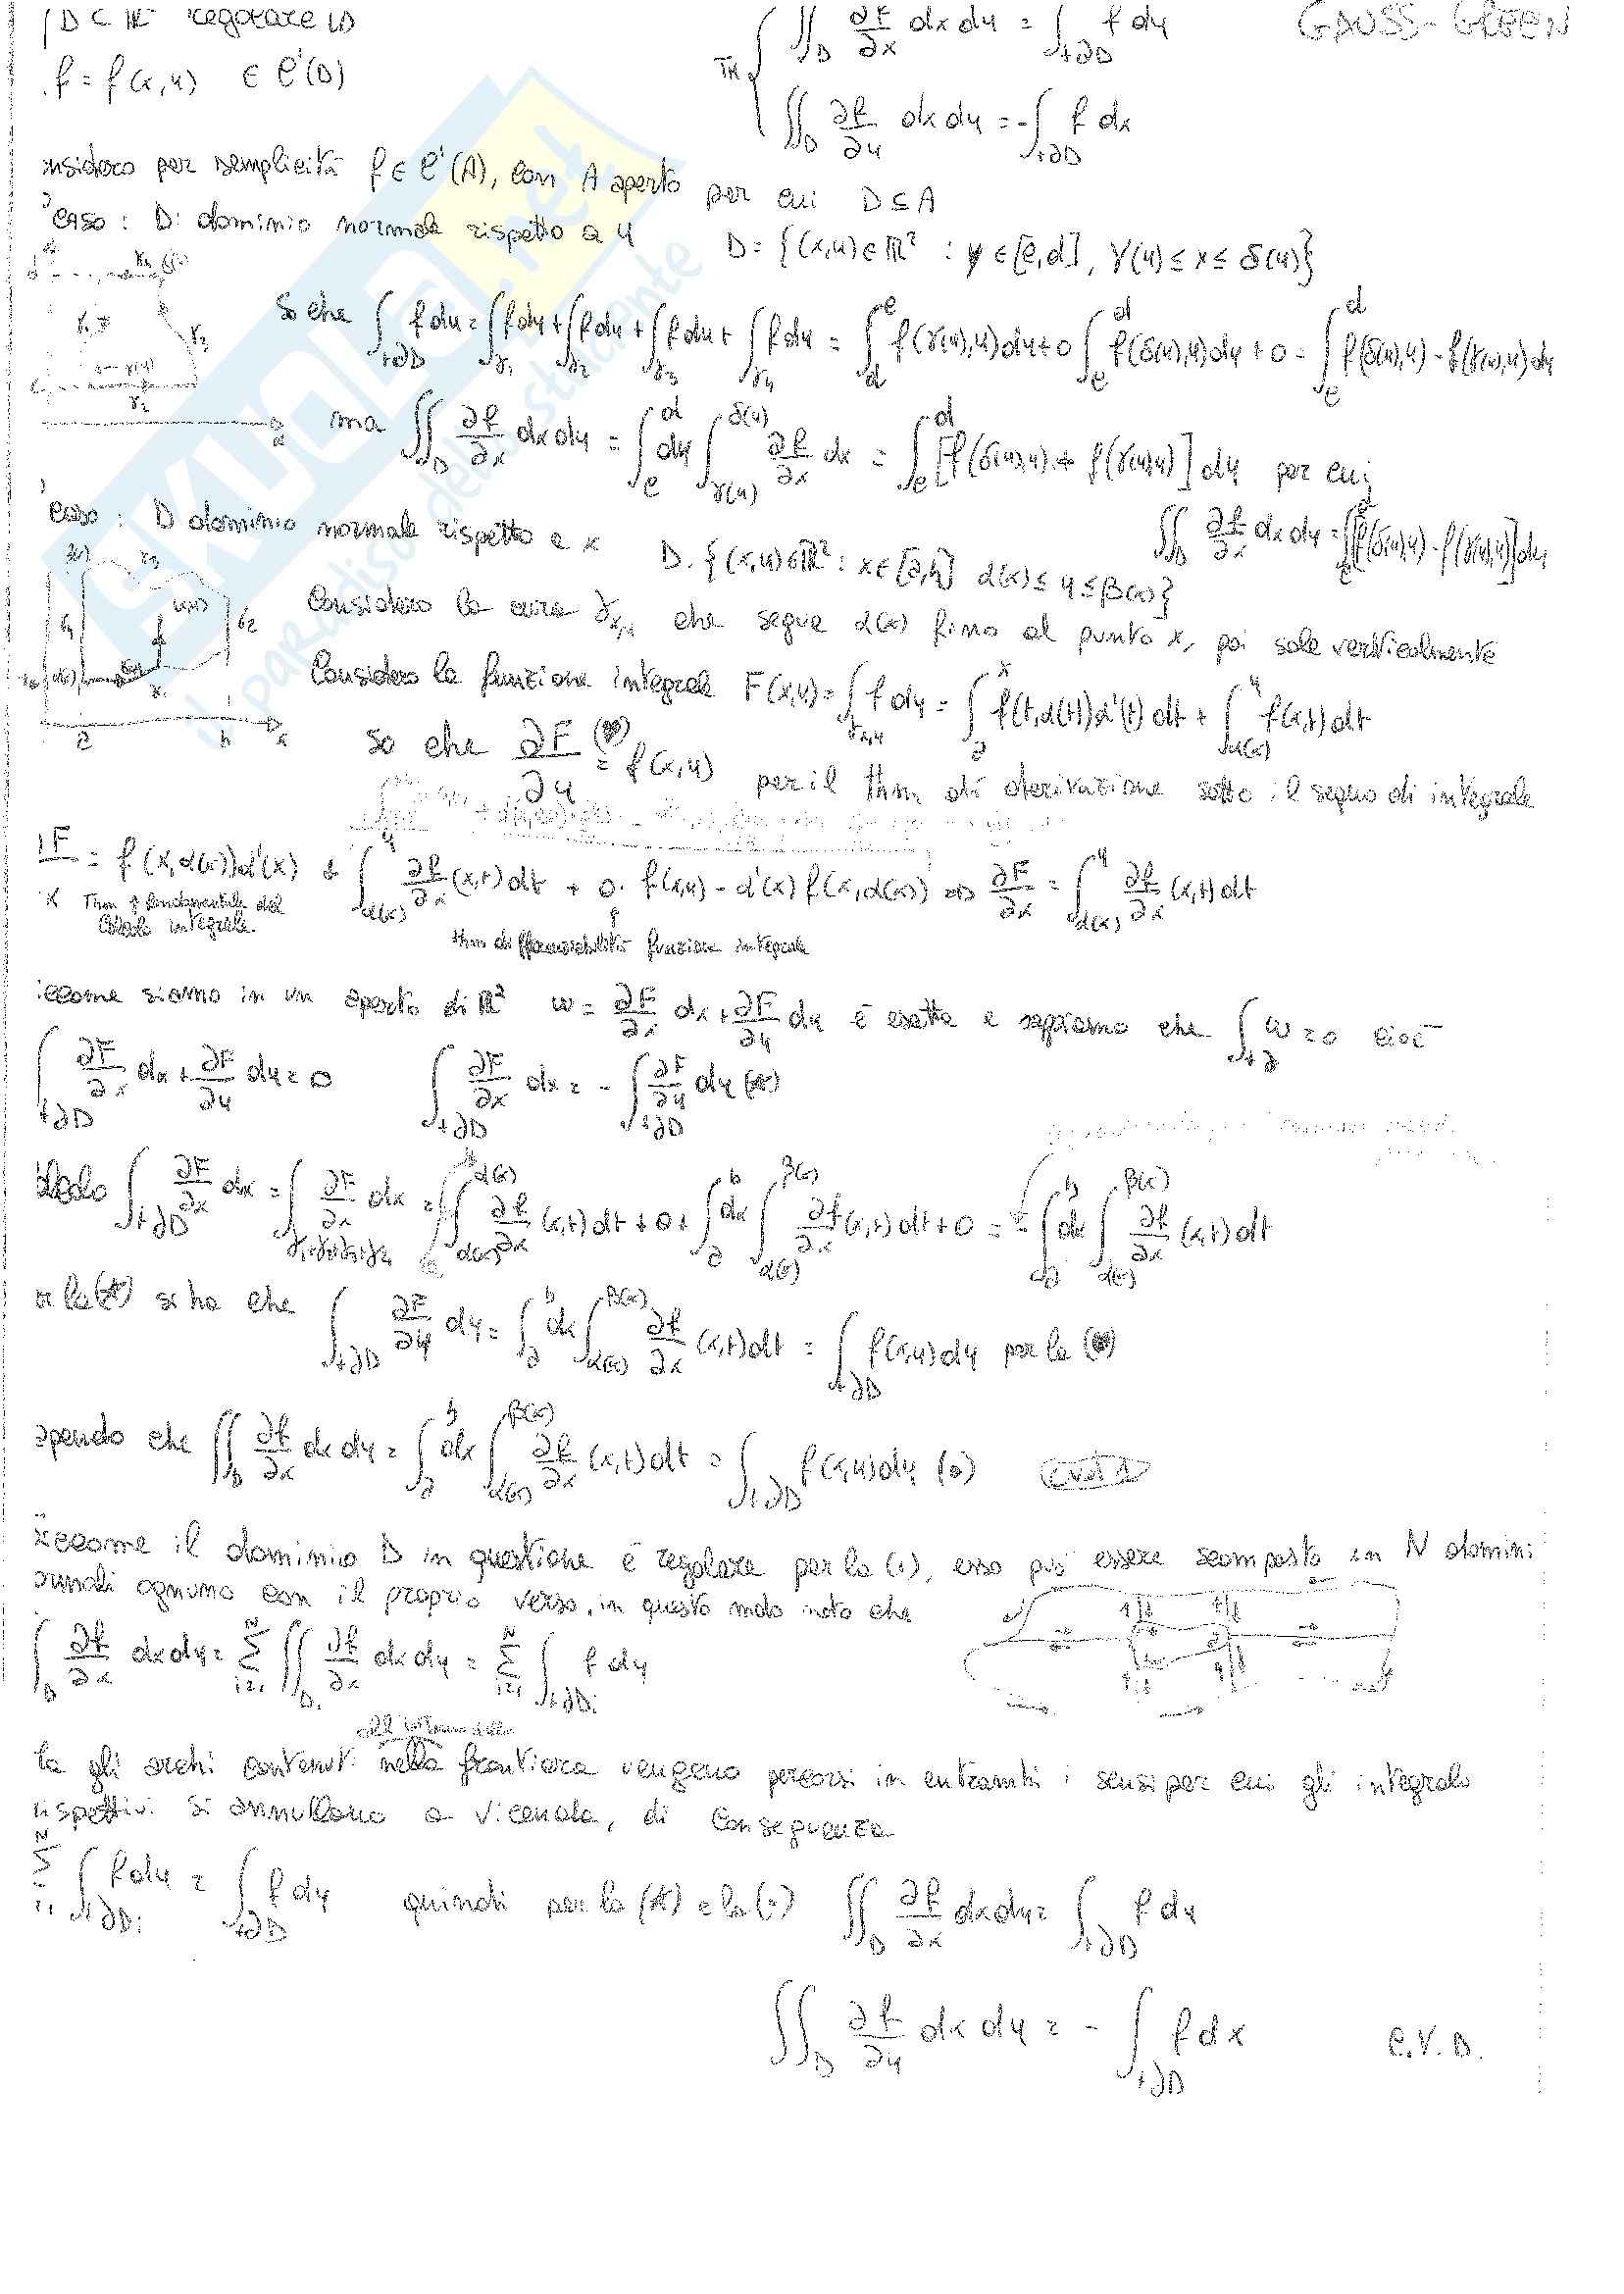 D ⊂ ℝ² regolare (1)
f = f(x,y) ∈ C¹(D)
TH { ∬_D ∂f/∂x dx dy = ∫_{+∂D} f dy
∬_D ∂f/∂y dx dy = -∫_{+∂D} f dx
GAUSS-GREEN
nsidero per semplicità f ∈ C¹(A), con A aperto per cui D ⊆ A
caso: D: dominio normale rispetto a y D = {(x,y) ∈ ℝ² : y ∈ [c,d], γ(y) ≤ x ≤ δ(y)}
So che ∫_{+∂D} f dy = ∫_{γ1} f dy + ∫_{γ2} f dy + ∫_{γ3} f dy + ∫_{γ4} f dy = ∫_d^c f(γ(y),y) dy + 0 ∫_c^d f(δ(y),y) dy + 0 = ∫_c^d f(δ(y),y) - f(γ(y),y) dy
ma ∬_D ∂f/∂x dx dy = ∫_c^d dy ∫_{γ(y)}^{δ(y)} ∂f/∂x dx = ∫_c^d [f(δ(y),y) + f(γ(y),y)] dy per cui
∬_D ∂f/∂x dx dy = ∫_c^d [f(δ(y),y) - f(γ(y),y)] dy
caso: D dominio normale rispetto a x D. {(x,y) ∈ ℝ² : x ∈ [a,b] α(x) ≤ y ≤ β(x)}
Considero la curva γ_{x,y} che segue α(x) fino al punto x, poi sale verticalmente
Considero la funzione integrale F(x,y) = ∫_{γx,y} f dy = ∫_a^x f(t,α(t))α'(t) dt + ∫_{α(x)}^y f(x,t) dt
So che ∂F/∂y = f(x,y) per il thm di derivazione sotto il segno di integrale
∂F/∂x = f(x,α(x))α'(x) + ∫_{α(x)}^y ∂f/∂x (x,t) dt + 0 · f(x,y) - α'(x) f(x,α(x)) ⇒ ∂F/∂x = ∫_{α(x)}^y ∂f/∂x (x,t) dt
Thm fondamentale del
Calcolo integrale.
thm di funzione integrale
iccome siamo in un aperto di ℝ² ω = ∂F/∂x dx + ∂F/∂y dy è esatta e sappiamo che ∫_{+∂} ω = 0 cioè
∫_{+∂D} ∂F/∂x dx + ∂F/∂y dy = 0 ∫_{+∂D} ∂F/∂x dx = - ∫_{+∂D} ∂F/∂y dy (*)
∫_{+∂D} ∂F/∂x dx = ∫_{γ1+γ2+γ3+γ4} ∂F/∂x dx = ∫∫_{α(x)}^{α(x)} ∂f/∂x (x,t) dt + 0 + ∫_a^b dx ∫_{α(x)}^{β(x)} ∂f/∂x (x,t) dt + 0 = - ∫_a^b dx ∫_{α(x)}^{β(x)} ∂f/∂x (x,t) dt
r la (*) si ha che ∫_{+∂D} ∂F/∂y dy = ∫_a^b dx ∫_{α(x)}^{β(x)} ∂f/∂x (x,t) dt = ∫_{+∂D} f(x,y) dy per la (♥)
apendo che ∬_D ∂f/∂x dx dy = ∫_a^b dx ∫_{α(x)}^{β(x)} ∂f/∂x (x,t) dt = ∫_{+∂D} f(x,y) dy (o)
iccome il dominio D in questione è regolare per la (1), esso può essere scomposto in N domini
ormali ognuno con il proprio verso, in questo modo noto che
∫_D ∂f/∂x dx dy = Σ_{i=1}^N ∬_{Di} ∂f/∂x dx dy = Σ_{i=1}^N ∫_{+∂Di} f dy
all'interno della
Ma gli archi contenuti nella frontiera vengono percorsi in entrambi i sensi per cui gli integrali
rispettivi si annullano a vicenda, di conseguenza
Σ ∫_{+∂Di} f dy = ∫_{+∂D} f dy quindi per la (*) e la (:) ∬_D ∂f/∂x dx dy = ∫_{+∂D} f dy
∬_D ∂f/∂y dx dy = - ∫_{+∂D} f dx C.V.D.